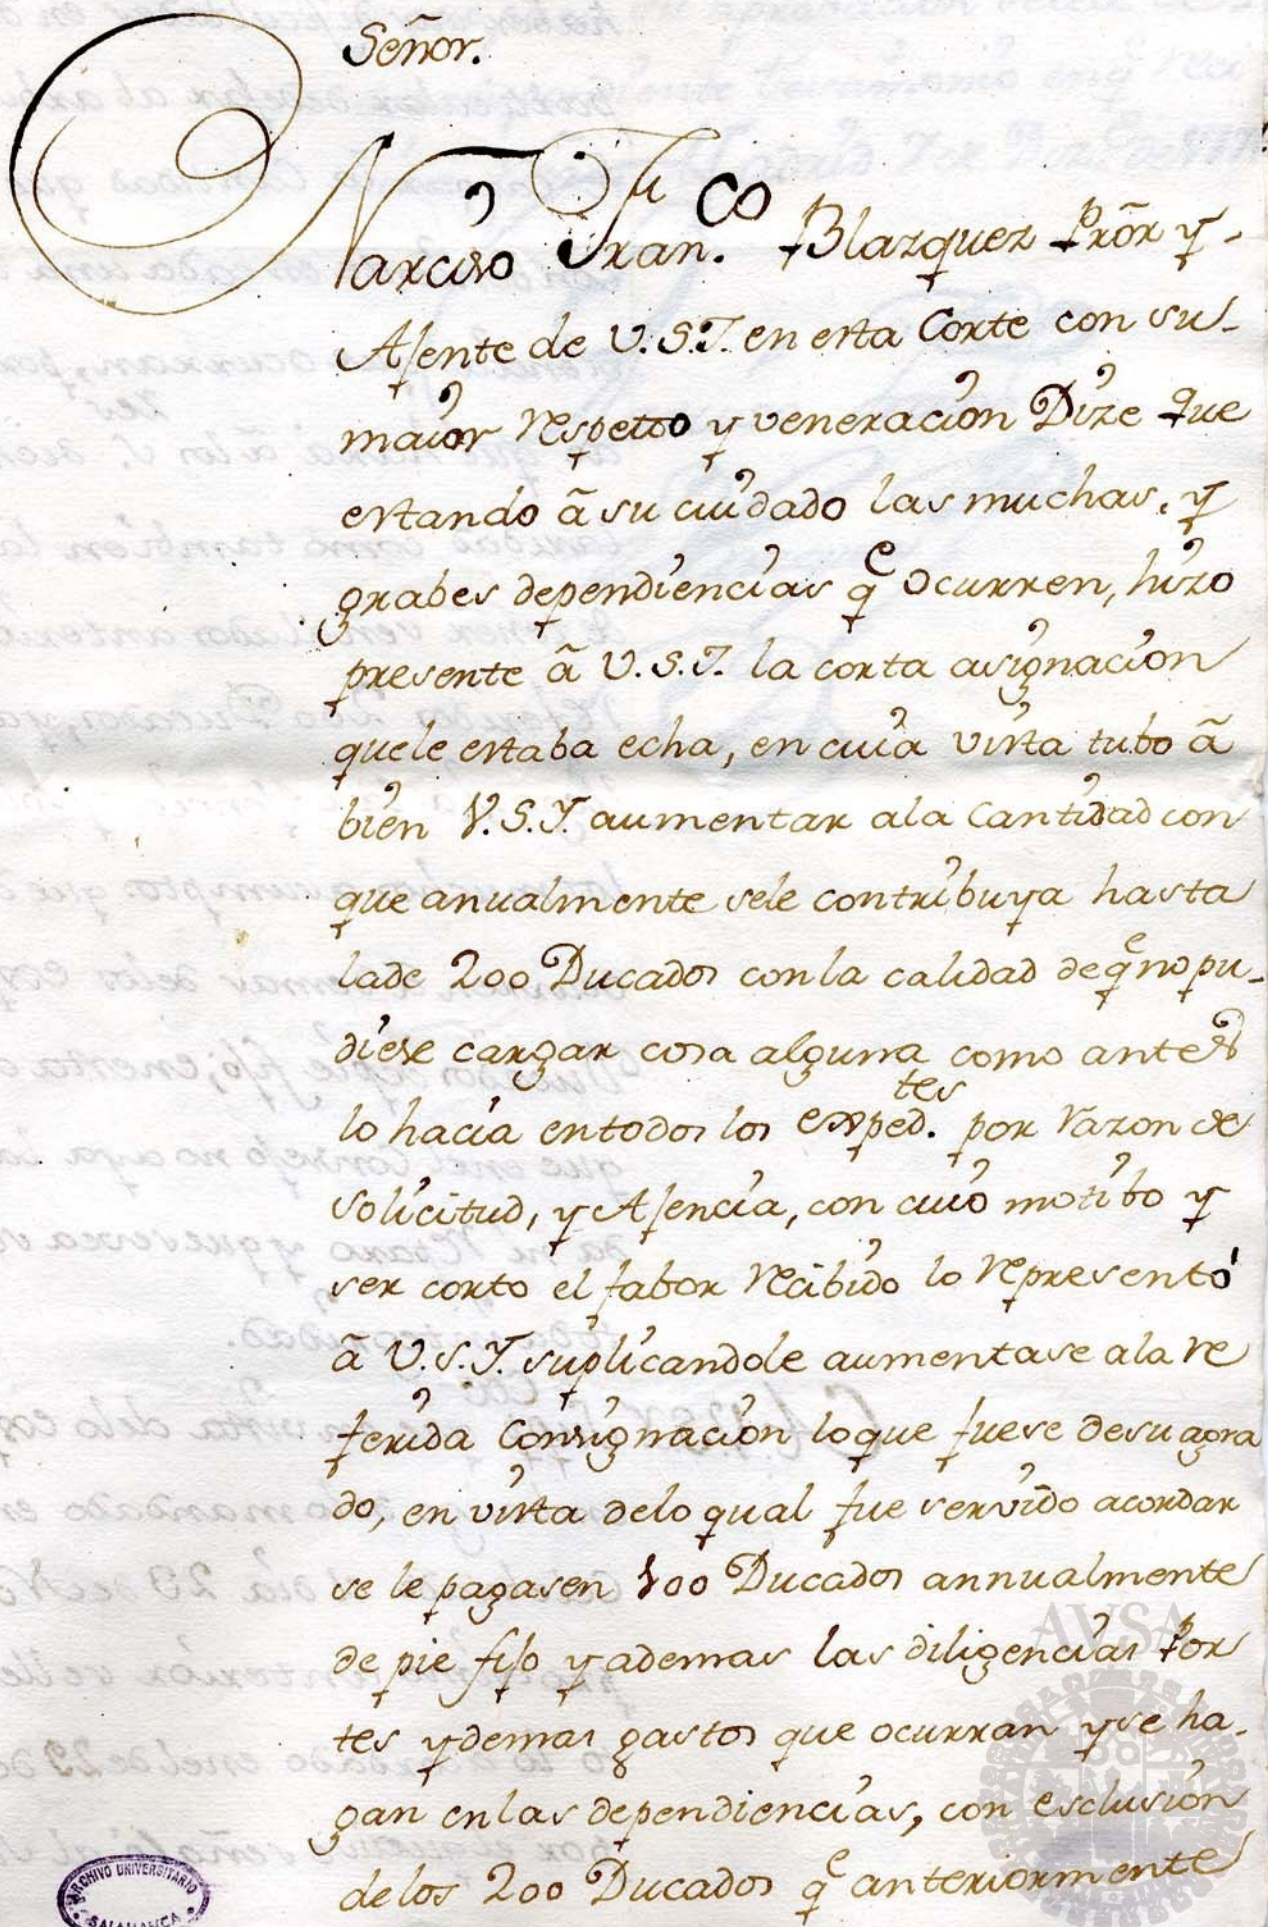 Señor.
Narciso Fran.co Blazquez Prõr y
Ajente de V.S.I. en esta Corte con su
maior respetto y veneracion Dize que
estando ã su cuidado las muchas, y
grabes dependiencias qe ocurren, hizo
presente ã V.S.I. la corta asignacion
quele estaba echa, en cuia vista tubo ã
bien V.S.I. aumentar ala Cantidad con
que anualmente sele contribuya hasta
lade 200 Ducados conla calidad deqe no pu-
diese cargar cosa alguna como antes
lo hacia entodos los exped.tes por razon de
solicitud, y Ajencia, con cuio motibo y
ser corto el fabor recibido lo representó
ã V.S.I. suplicandole aumentase ala re
ferida Consignacion loque fuese desu agra
do, en vista delo qual fue servido acordar
se le pagasen 100 Ducados annualmente
de pie fijo y ademas las diligencias Por
tes y demas gastos que ocurran y se ha-
gan enlas dependiencias, con esclusion
delos 200 Ducados qe anteriormente
AVSA
ARCHIVO UNIVERSITARIO
SALAMANCA